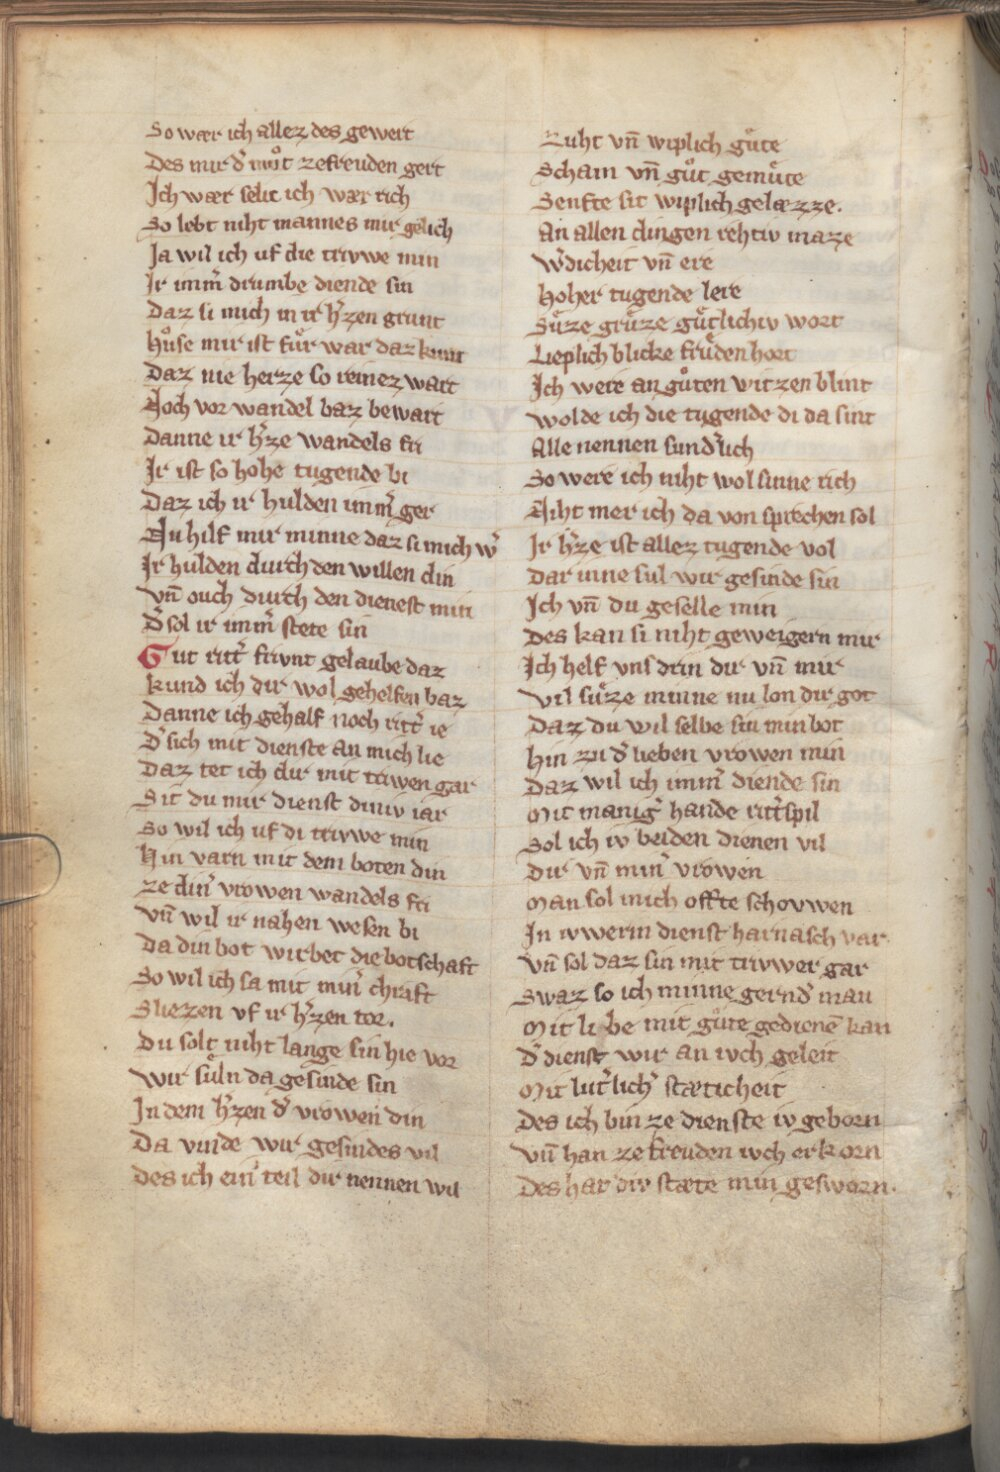 So wær ich allez des gewert
Des mir d͛ mu̍ͦt zefreuden gert
Ich wær selic ich wær rich
So lebt niht mannes mir gelich
Ja wil ich uf die triwe min
Ir imm͛ drumbe diende sin
Daz si mich in ir h͛zen grunt
Huͦse mir ist fuͤr war daz kunt
Daz nie herze so reinez wart
Noch vor wandel baz bewart
Danne ir h͛ze wandels fri
Ir ist so hohe tugende bi
Daz ich ir hulden imm͛ ger
Nu hilf mir minne daz si mich w͛
Ir hulden durch den willen din
Vn̄ ouch durch den dienest min
D͛ sol ir imm͛ stete sin
Gut ritt͛ frivnt gelaube daz
Kund ich dir wol gehelfen baz
Danne ich gehalf noch ritt͛ ie
D͛ sich mit dienste an mich lie
Daz tet ich dur mit triwen gar
Sit du mir dienst diniv iar
So wil ich uf di triwe min
Hin varn mit dem boten din
Ze din͛ vrowen wandels fri
Vn̄ wil ir nahen wesen bi
Da din bot wirbet die botschaft
So wil ich sa mit min͛ chraft
Sliezen vf ir h͛zen tor.
Du solt niht lange sin hie vor
Wir suͤln da gesinde sin
In dem h͛zen d͛ vrowen din
Da vinde wir gesindes vil
Des ich ein͛ teil dir nennen wil
Zuht vn̄ wiplich guͤte
Scham vn̄ guͦt gemuͤte
Senfte sit wiplich gelæzze.
An allen dingen rehtiv maze
W͛dicheit vn̄ ere
Hoher tugende lere
Suͤze gruͤze guͤtlichiv wort
Lieplich blicke fruͤden hort
Ich were an guͦten witzen blint
Wolde ich die tugende di da sint
Alle nennen sund͛lich
So were ich niht wol sinne rich
Niht mer ich da von sprechen sol
Ir h͛ze ist allez tugende vol
Dar inne sul wir gesinde sin
Ich vn̄ du geselle min
Des kan si niht geweigern mir
Ich helf vns drin dir vn̄ mir
Vil suͤze minne nu lon dir got
Daz du wil selbe sin min bot
Hin zu d͛ lieben vrowen min
Daz wil ich imm͛ diende sin
Mit manig͛ hande ritt͛spil
Sol ich iv beiden dienen vil
Dir vn̄ min͛ vrowen
Man sol mich offte schovwen
In ivwerm dienst harnasch var
Vn̄ sol daz sin mit trivwer gar
Swaz so ich minne gernd͛ man
Mit liebe mit guͤte gedienē kan
D͛ dienst wir an ivch geleit
Mit lut͛lich͛ stæticheit
Des ich bin ze dienste iv geborn
Vn̄ han ze freuden ivch erkorn
Des hat div stæte min gesworn.